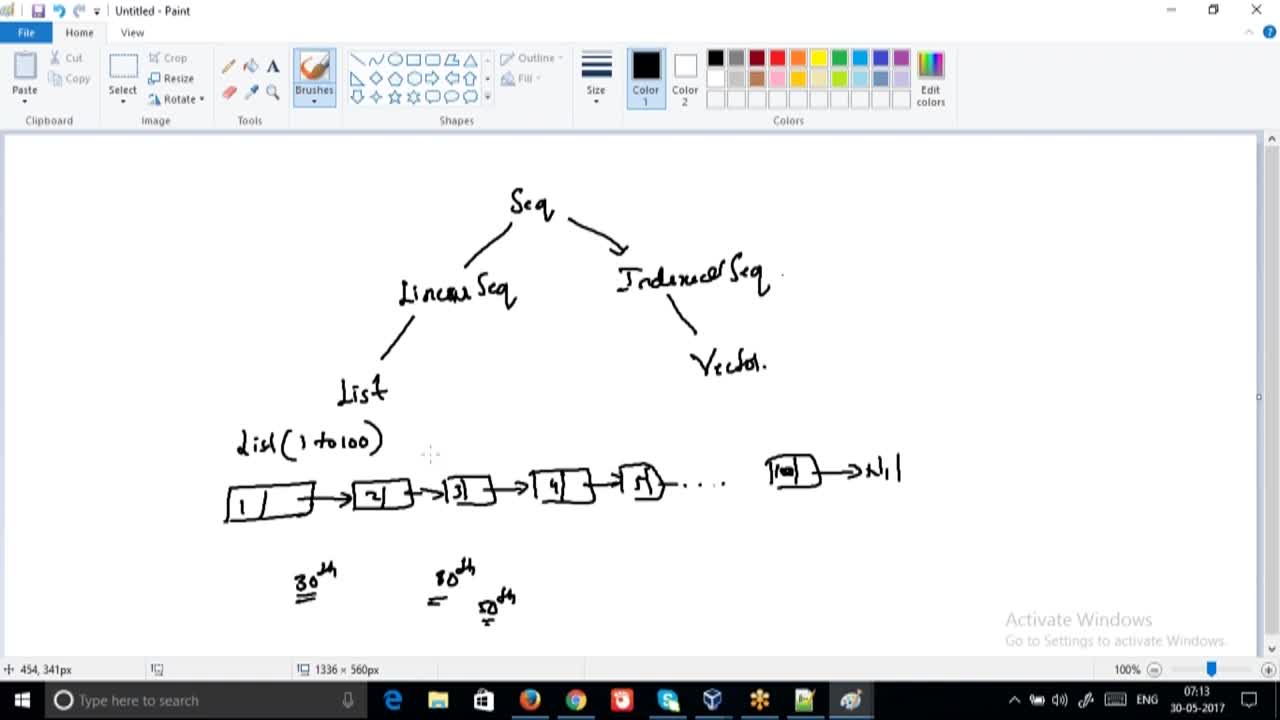 Untitled - Paint
File Home View
Paste
Cut
Copy
Clipboard
Select
Crop
Resize
Rotate
Image
A
Tools
Brushes
Shapes
Outline
Fill
Size
Color 1
Color 2
Edit colors
Colors
Seq
Linear Seq
Indexed Seq
List
Vector.
List (1 to 100)
1 2 3 4 5 .... 100 Nil
30th 80th
50th
Activate Windows
Go to Settings to activate Windows.
454, 341px
1336 × 560px
100%
Type here to search
ENG
07:13
30-05-2017